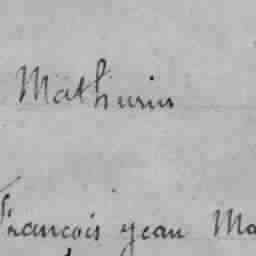 Mathurin
Francois jean Ma